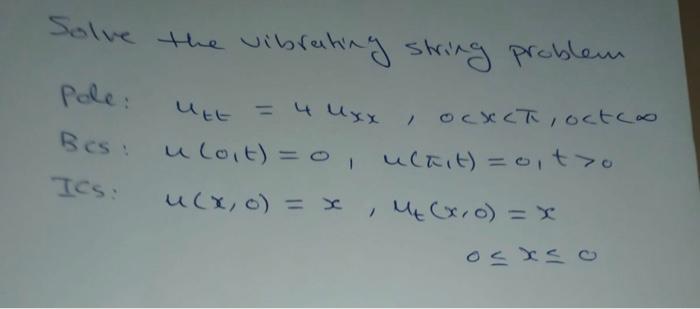 Solve the vibrating string problem
Pde: u_tt = 4 u_xx , 0<x<π, 0<t<∞
BCs: u(0,t) = 0, u(π,t) = 0, t>0
ICs: u(x,0) = x , u_t(x,0) = x
0 ≤ x ≤ 0